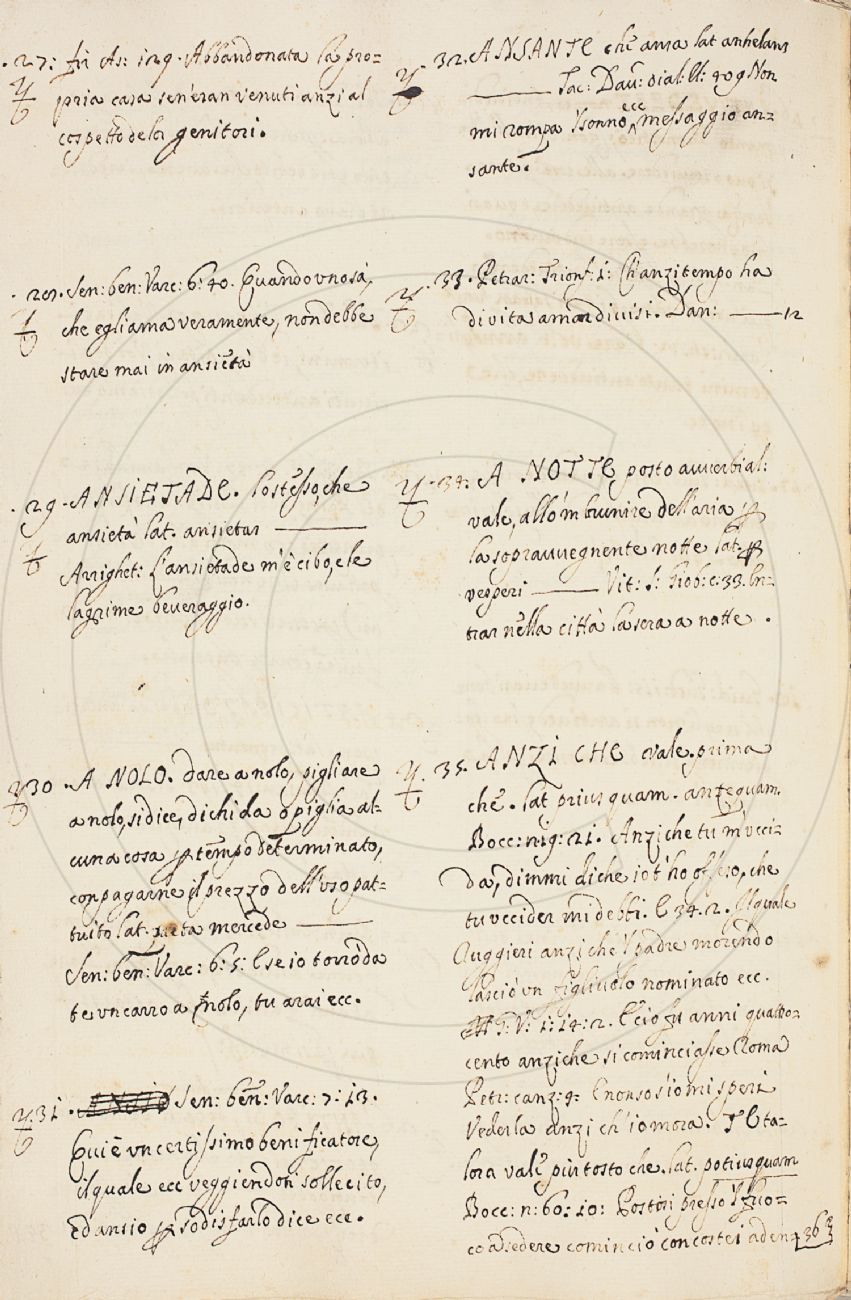 . 27: fir As: 129. Abbandonata la pro=
pria casa sen'eran venuti anzi al
cospetto de lor genitori.
. 28. Sen: ben: Varc: 6: 40. Quando uno sà,
che egli ama veramente, non debbe
stare mai in ansietà
. 29. ANSIETADE. lo stesso, che
ansietà lat. ansietas ———
Arrighet: L'ansietade m'è cibo, e le
lagrime beveraggio.
30 . A NOLO. dare a nolo, pigliare
a nolo, si dice, di chi da o piglia al=
cuna cosa p tempo determinato,
con pagarne il prezzo dell'uso pat=
tuito lat. mercede ———
Sen: ben: Varc: 6: 5: E se io torrò da
te un carro a nolo, tu arai ecc.
31 . Sen: ben: Varc: 7: 13.
Qui è un certissimo benificatore,
il quale ecc veggiendoti sollecito,
ed ansio p sodisfarlo dice ecc.
32. ANSANTE che ansa lat anhelans
——— Jac: Dav: dial: 409 Non
mi rompa 'l sonno ecc messaggio an=
sante.
33. Petrar: Trionf. 1: Ch'anzi tempo ha
di vita amor divisi. Dan: ——— 12
. 34: A NOTTE posto avverbial:
vale, allo 'mbrunire dell'aria p
la sopravvegnente notte lat. p
vesperi ——— Vit: S: Giob: c: 33. En=
trar nella città la sera a notte .
35. ANZI CHE vale prima
che. lat prius quam. ante quam.
Bocc: nig: 21. Anzi che tu m'ucci=
da, dimmi di che io t'ho offeso, che
tu uccider mi debbi. E 34. 2. Il quale
Ruggieri anzi che 'l padre morendo
lasciò un figliuolo nominato ecc.
G: V: 1: 14: 2. E ciò fu anni quatto=
cento anziche si cominciasse Roma
Petr: canz: 9: E non so s'io mi speri
Vederla anzi ch'io mora. TE ta=
lora vale piu tosto che. lat. potiusquam
Bocc: n: 60: 10: Postosi presso 'l fuo=
co a sedere cominciò con costei ad en=
36